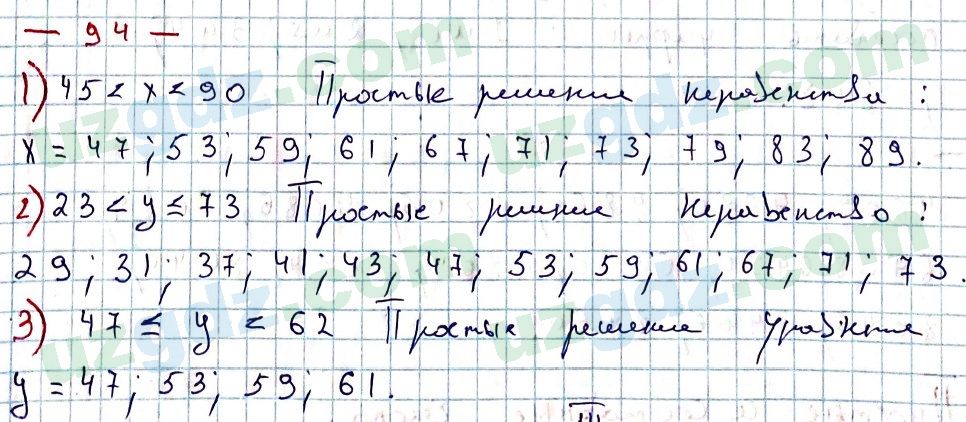 — 94 —
1) 45 < x < 90 Простые решение неравенства :
x = 47 ; 53 ; 59 ; 61 ; 67 ; 71 ; 73 ; 79 ; 83 ; 89 .
2) 23 < y ≤ 73 Простые решние неравенство :
29 ; 31 ; 37 ; 41 ; 43 ; 47 ; 53 ; 59 ; 61 ; 67 ; 71 ; 73 .
3) 47 ≤ y < 62 Простые решение
y = 47 ; 53 ; 59 ; 61 .
uzgdz.com
uzgdz.com
uzgdz.com
uzgdz.com